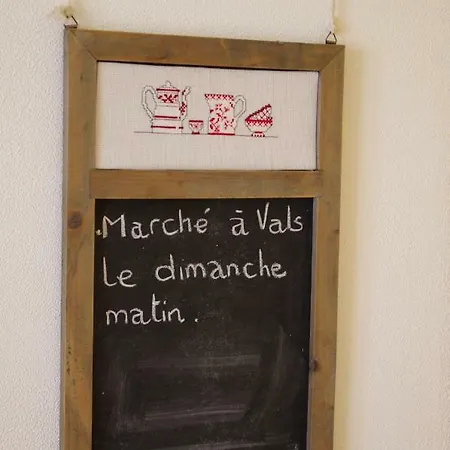 Marché à Vals
le dimanche
matin.